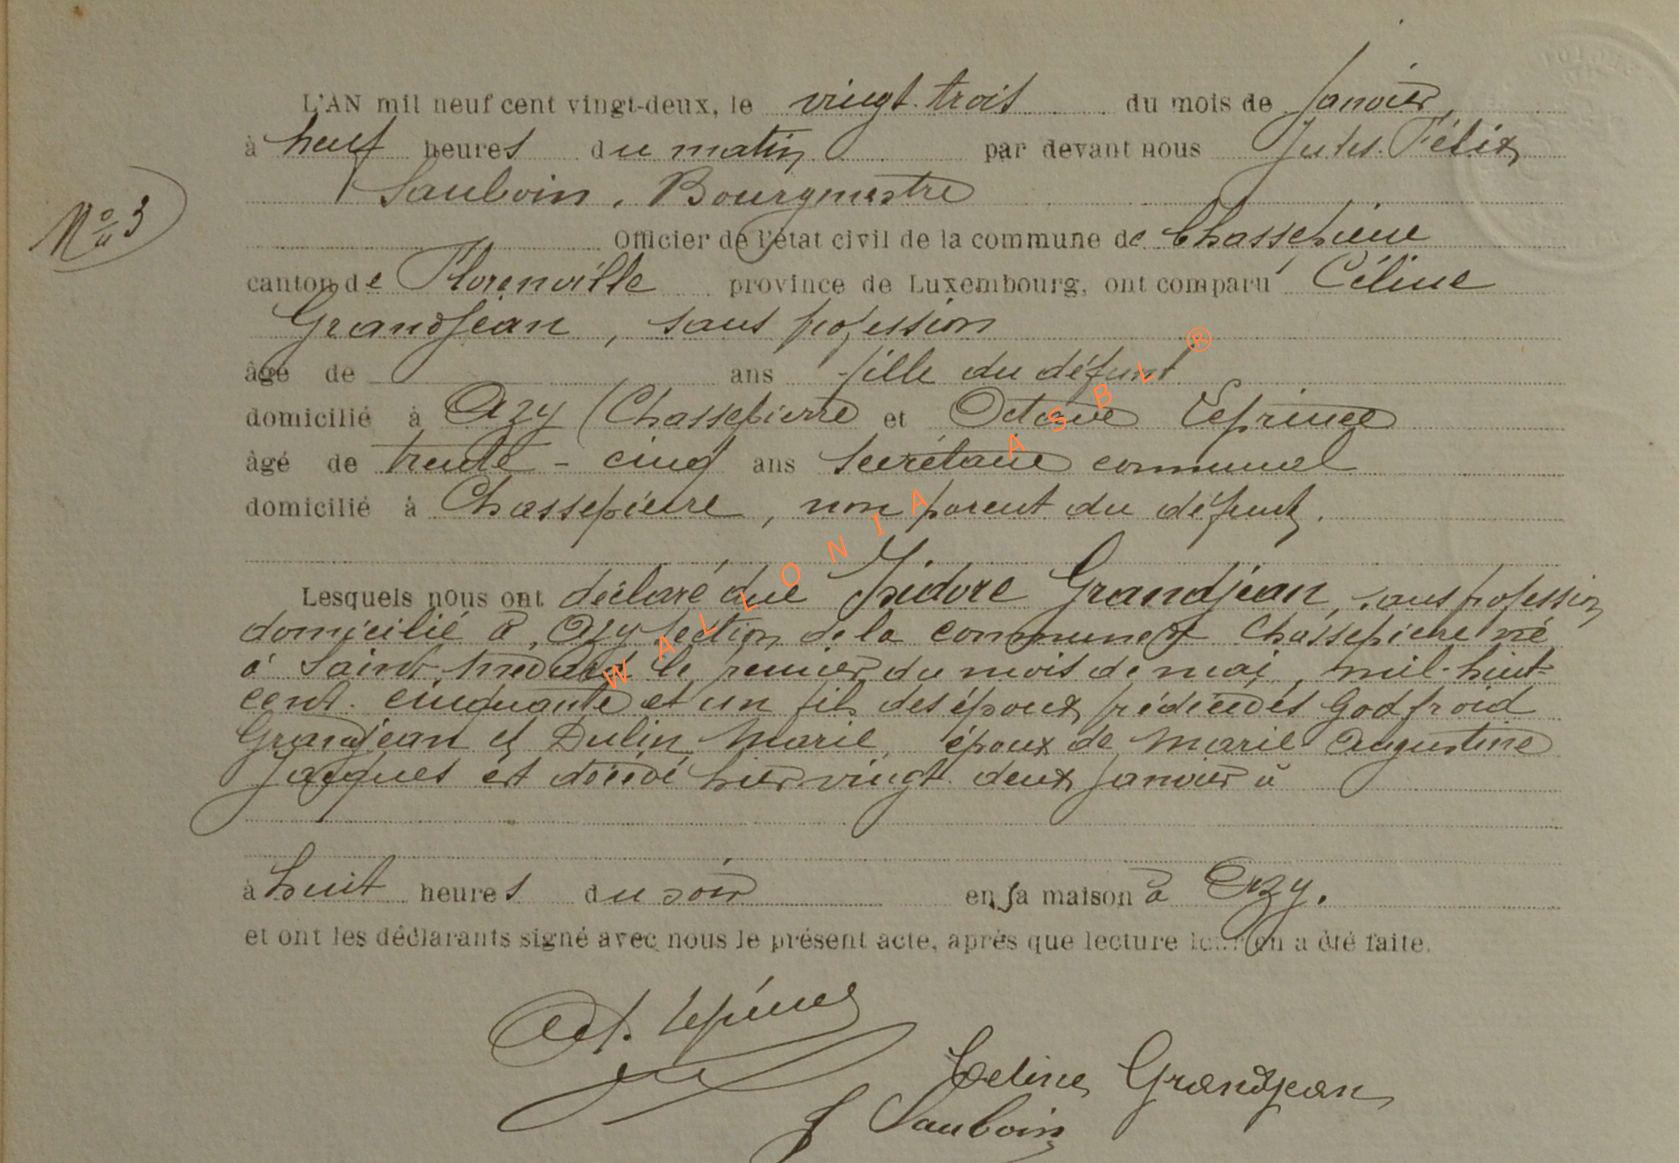 L'AN mil neuf cent vingt-deux, le vingt trois du mois de Janvier
à neuf heures du matin par devant nous Jules Félix
Sauboin, Bourgmestre
N° 3
Officier de l'état civil de la commune de Chassepierre
canton de Florenville province de Luxembourg, ont comparu Céline
Grandjean, sans profession
âgé de ans fille du défunt
domicilié à Azy (Chassepierre et Octave Leprince
âgé de trente-cinq ans secrétaire communal
domicilié à Chassepierre, non parent du défunt.
Lesquels nous ont déclaré que Isidore Grandjean, sans profession
domicilié à Azy section de la commune de Chassepierre né
à Saint-Médard le premier du mois de mai, mil-huit-
cent cinquante et un fils des époux prédécédés Godfroid
Grandjean et Dulin Marie, époux de Marie Augustine
Jacques est décédé hier vingt deux Janvier à
à huit heures du soir en sa maison à Azy.
et ont les déclarants signé avec nous le présent acte, après que lecture leur en a été faite.
Oct. Leprince
Celine Grandjean
J Sauboin
WALLONIA ASBL ®